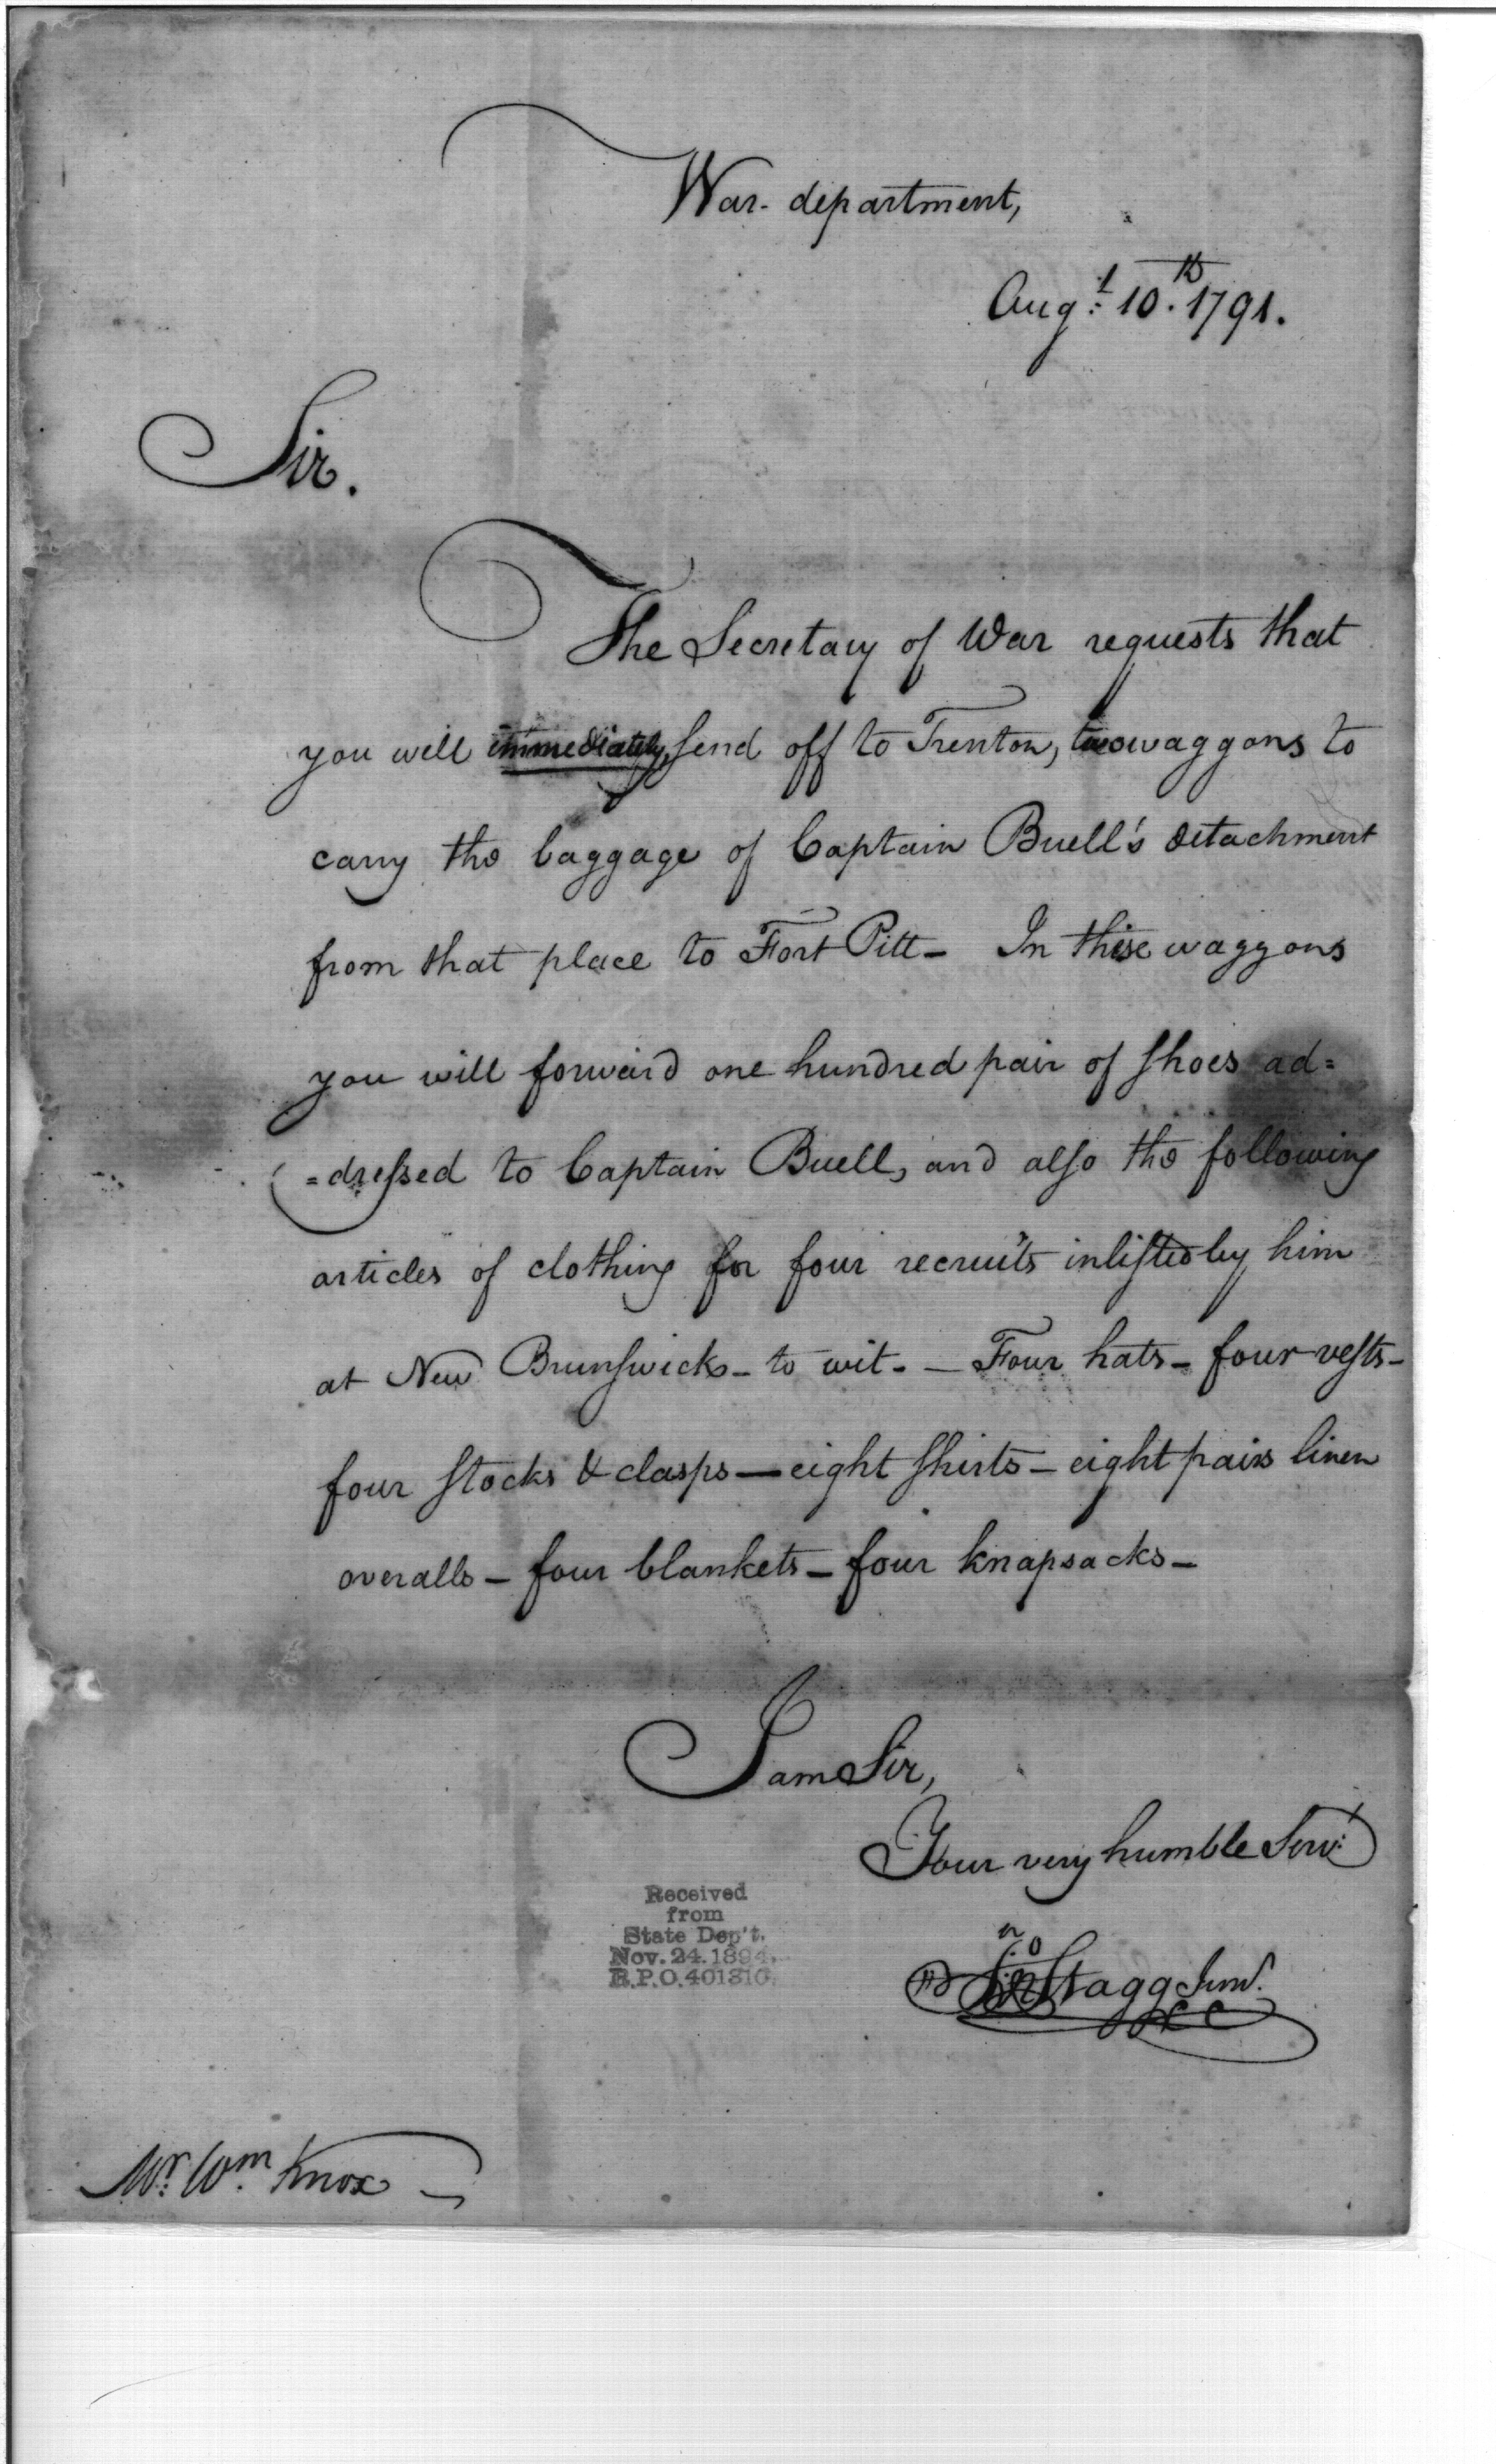 War department,
Augt. 10th. 1791.
Sir.
The Secretary of War requests that
you will immediately, send off to Trenton, two waggons to
carry the baggage of Captain Buell's detachment
from that place to Fort Pitt - In these waggons
you will forward one hundred pair of shoes ad=
=dressed to Captain Buell, and also the following
articles of clothing for four recruits inlisted by him
at New Brunswick - to wit - Four hats - four vests -
four stocks & clasps - eight shirts - eight pairs linen
overalls - four blankets - four knapsacks -
I am Sir,
Your very humble Servt.
Jno Stagg Junr.
CC
Received
from
State Dep't.
Nov. 24. 1894.
R.P.O. 401310.
Mr. Wm. Knox